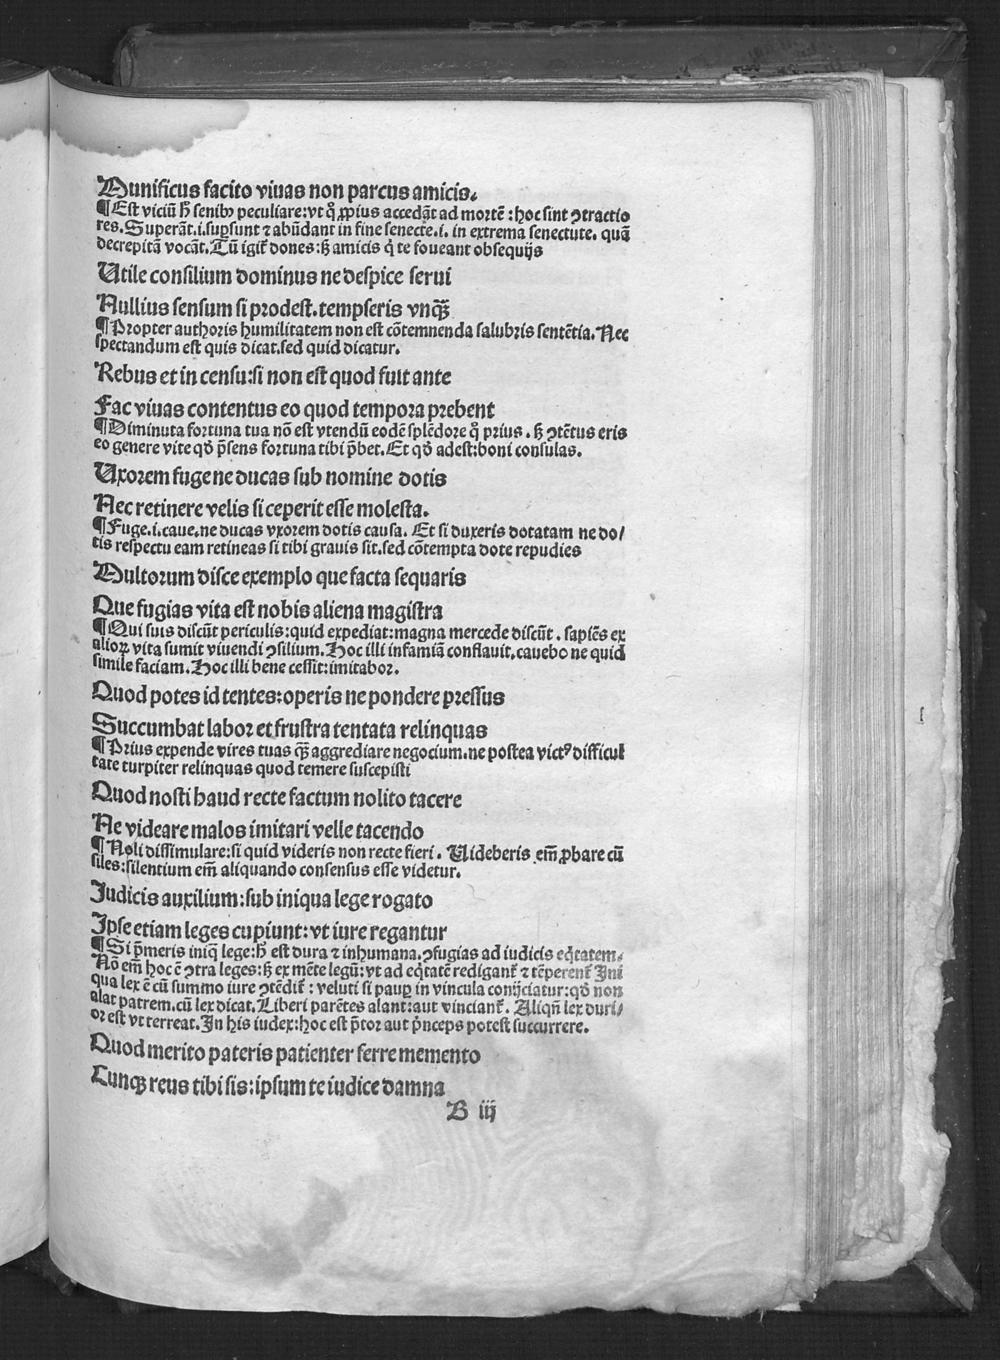 Munificus facito viuas non parcus amicis.
¶Est viciū hꝰ senibꝰ peculiare:vt qͦ ꝓpius accedāt ad mortē:hoc sint ꝯtractio
res.Superāt.i.supsunt ⁊ abūdant in fine senecte.i. in extrema senectute. quā
decrepitā vocāt.Tū igiť dones:sꝫ amicis q̇ te foueant obsequijs
Utile consilium dominus ne despice serui
Nullius sensum si prodest.tempseris vnq̄ꝫ
¶Propter authoris humilitatem non est cōtemnenda salubris sentētia.Nec
spectandum est quis dicat.sed quid dicatur.
Rebus et in censu:si non est quod fuit ante
Fac viuas contentus eo quod tempora prebent
¶Diminuta fortuna tua nō est vtendū eodē splēdore qͦ prius. sꝫ ꝯtētus eris
eo genere vite qď p̄sens fortuna tibi p̄bet.Et qď adest:boni consulas.
Uxorem fuge ne ducas sub nomine dotis
Nec retinere velis si ceperit esse molesta.
¶Fuge.i.caue.ne ducas vxorem dotis causa. Et si duxeris dotatam ne do/
tis respectu eam retineas si tibi grauis sit.sed cōtempta dote repudies
Multorum disce exemplo que facta sequaris
Que fugias vita est nobis aliena magistra
¶Qui suis discūt periculis:quid expediat:magna mercede discūt. sapiēs ex
alioꝝ vita sumit viuendi ꝯsilium.Hoc illi infamiā conflauit.cauebo ne quid
simile faciam.Hoc illi bene cessit:imitabor.
Quod potes id tentes:operis ne pondere pressus
Succumbat labor et frustra tentata relinquas
¶Prius expende vires tuas q̄ꝫ aggrediare negocium.ne postea victꝰ difficul
tate turpiter relinquas quod temere suscepisti
Quod nosti haud recte factum nolito tacere
Ne videare malos imitari velle tacendo
¶Noli dissimulare:si quid videris non recte fieri. Uideberis em̄ ꝓbare cū
siles:silentium em̄ aliquando consensus esse videtur.
Judicis auxilium:sub iniqua lege rogato
Ipse etiam leges cupiunt:vt iure regantur
¶Si p̄meris iniq̄ lege:hꝰ est dura ⁊ inhumana.ꝯfugias ad iudicis eq̇tatem.
Nō em̄ hoc ē ꝯtra leges:sꝫ ex mēte legū:vt ad eq̇tatē redigant᷑ ⁊ tēperent᷑ Ini
qua lex ē cū summo iure ꝯtēdit᷑: veluti si paup in vincula conijciatur:qď non
alat patrem.cū lex dicat.Liberi parētes alant:aut vinciant᷑. Aliqn̄ lex duri/
or est vt terreat.In his iudex:hoc est p̄tor aut p̄nceps potest succurrere.
Quod merito pateris patienter ferre memento
Cunqꝫ reus tibi sis:ipsum te iudice damna
B iij